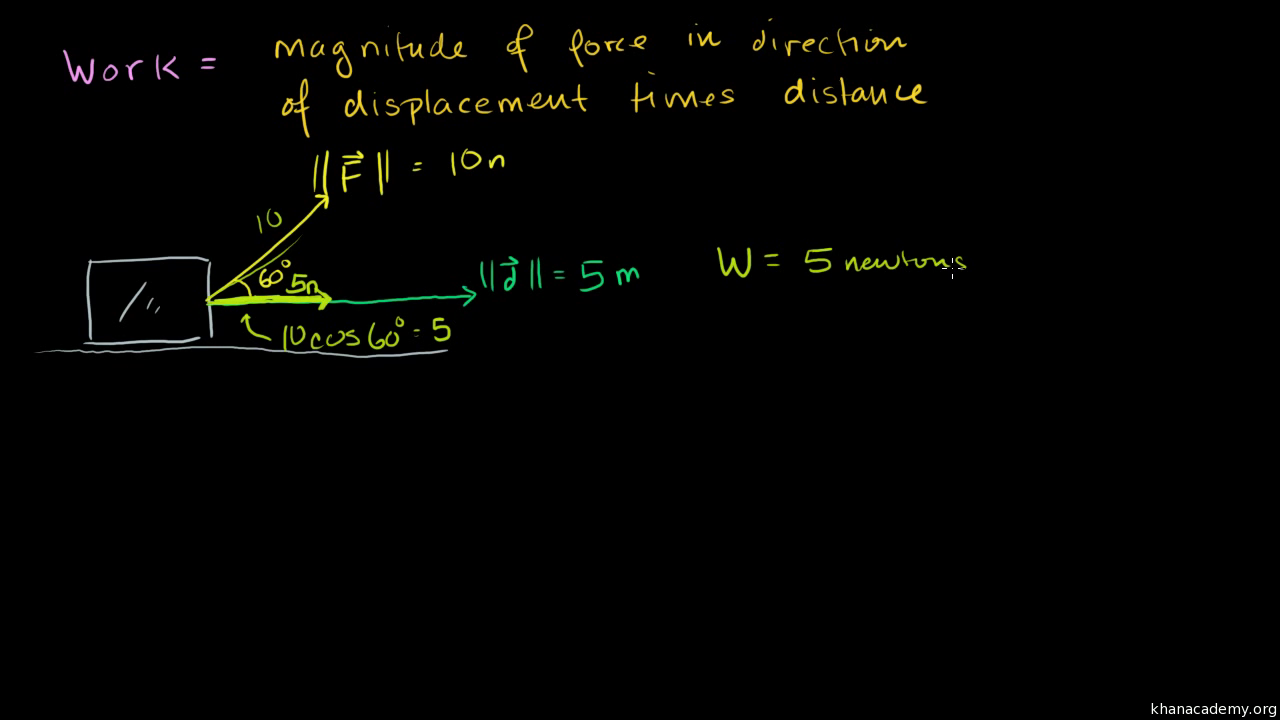 Work = magnitude of force in direction
of displacement times distance
||F⃗|| = 10n
10
60° 5n
||d⃗|| = 5m
W = 5 newtons
10cos60° = 5
khanacademy.org